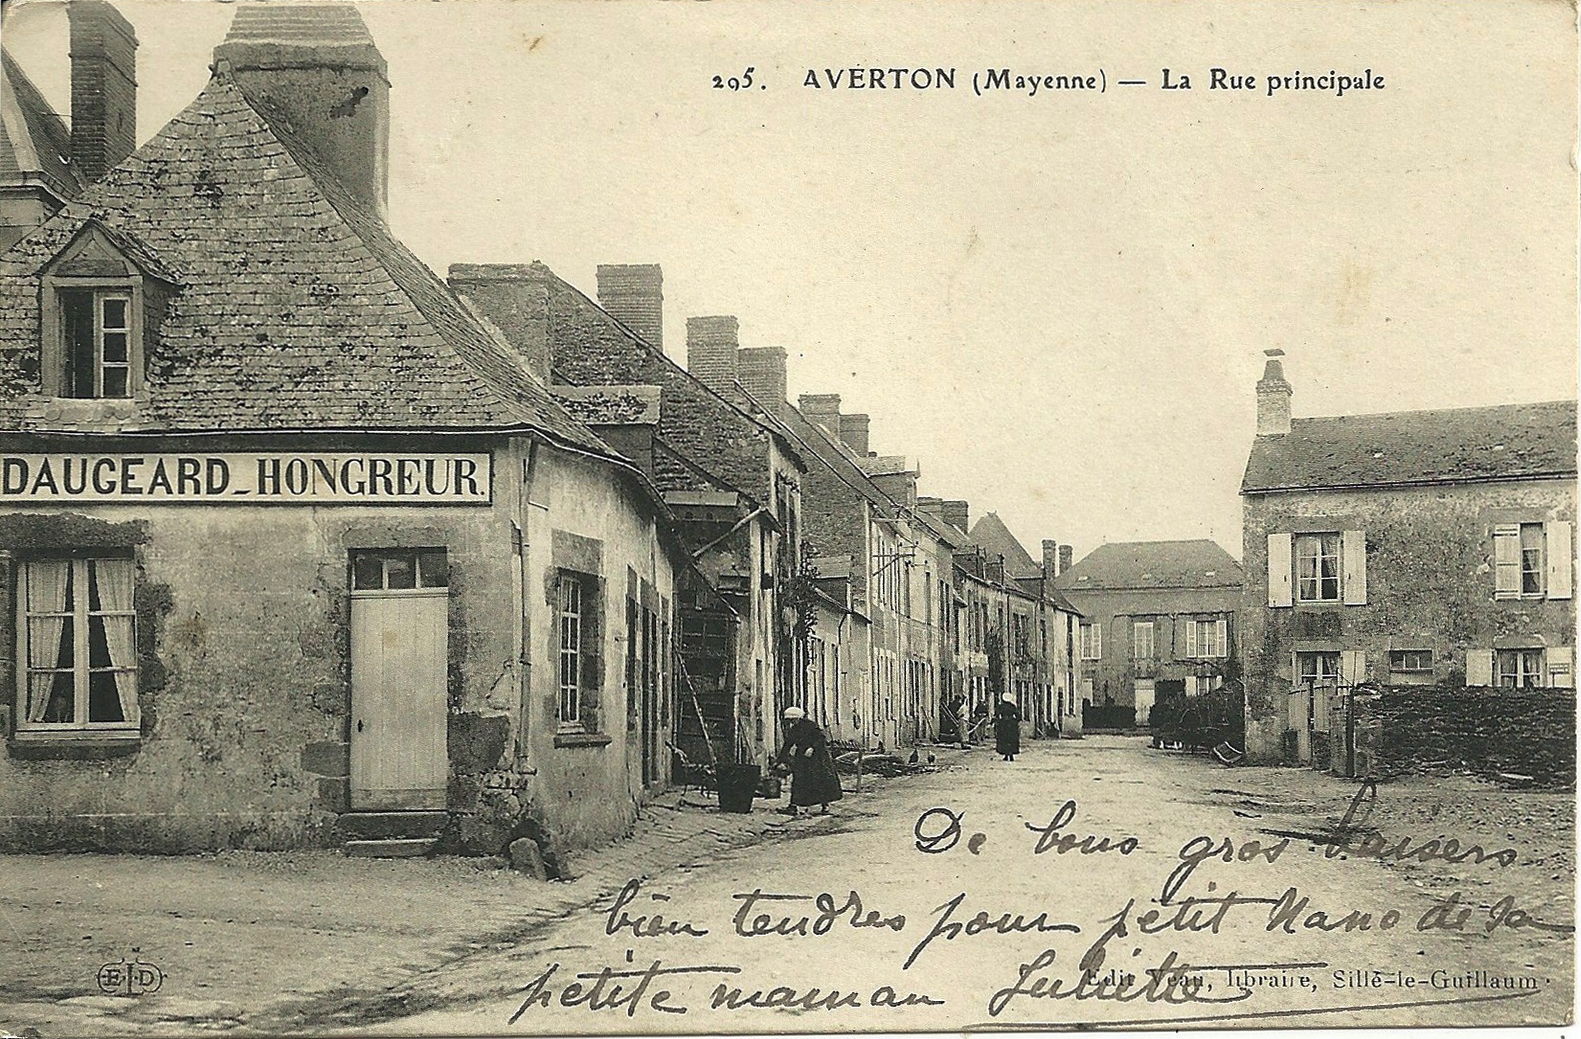 295. AVERTON (Mayenne) — La Rue principale
DAUGEARD - HONGREUR.
De bons gros baisers
bien tendres pour petit Nano de sa
petite maman Juliette
Edit Veau, libraire, Sillé-le-Guillaum
ELD